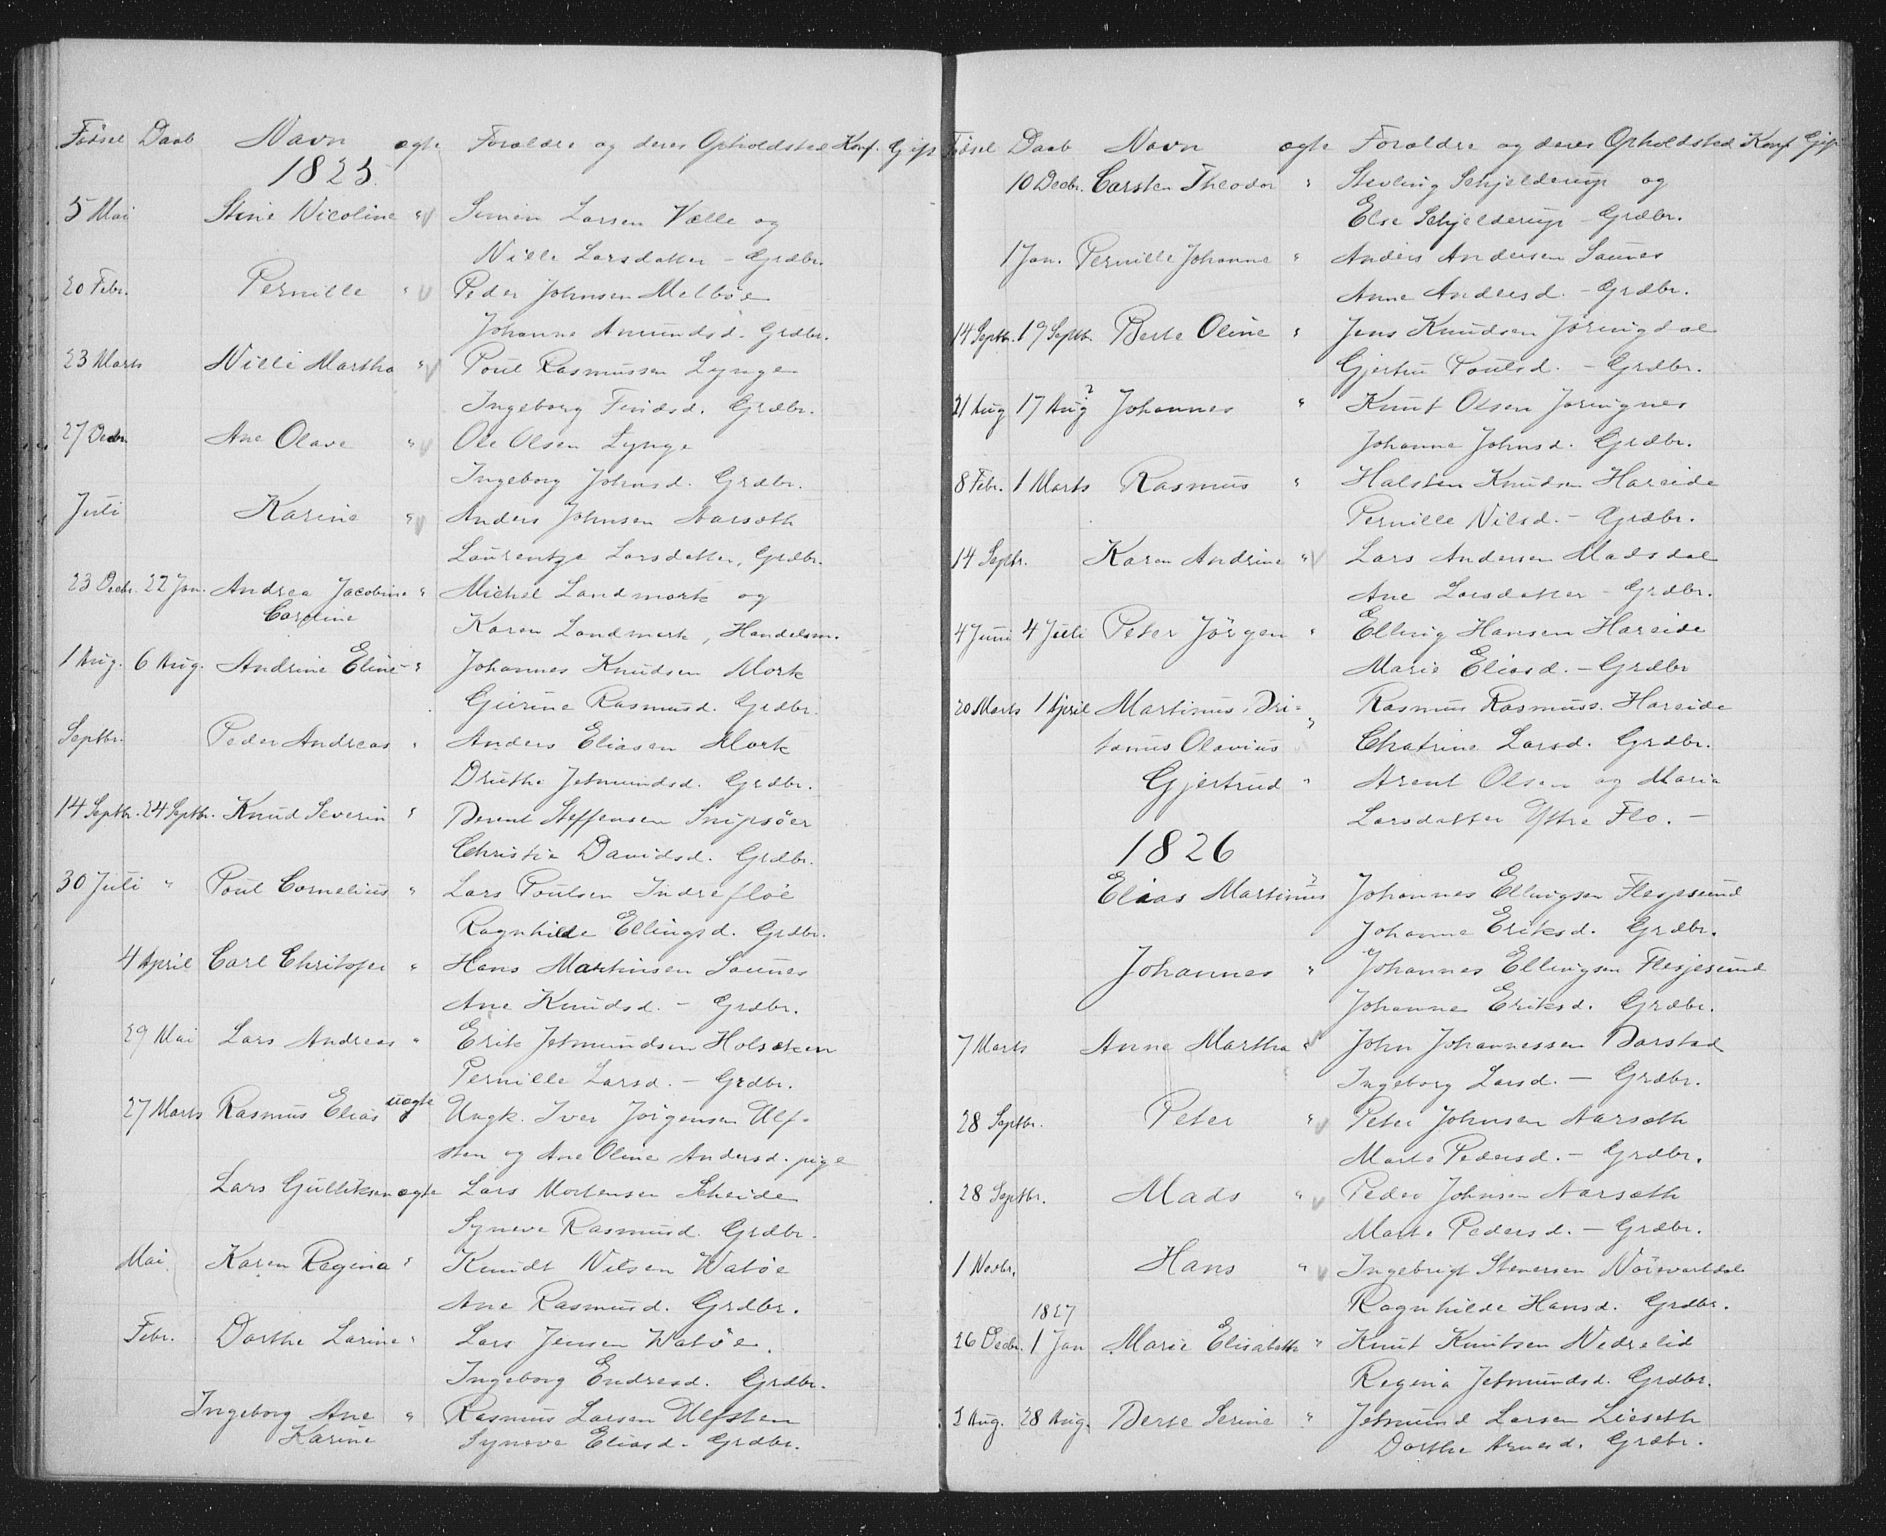 Fødsel Daab Navn ægte Forældre og deres Opholdsted Konf. Gift
1825.
5 Mai Stine Nicoline " Simon Larsen Vælle og
Nille Larsdatter - Grdbr.
20 Febr. Pernille " Peder Johnsen Melbøe
Johanne Amundsd. Grdbr.
23 Marts Nille Martha " Poul Rasmussen Lynge
Ingeborg Findsd. Grdbr.
27 Decbr. Ane Olave " Ole Olsen Lynge
Ingeborg Johnsd. Grdbr.
Juli Karine " Anders Johnsen Aarsæth
Laurentze Larsdatter, Grdbr.
23 Decbr. 22 Jan. Andrea Jacobine " Michel Landmark og
Caroline Karen Landmark, Handelsm.
1 Aug. 6 Aug. Andrine Eline " Johannes Knudsen Mork
Gurine Rasmusd. Grdbr.
Septbr. Peder Andreas " Anders Eliasen Mork
Druthe Jetmundsd. Grdbr.
14 Septbr. 24 Septbr. Knud Severin " Berent Steffensen Snipsöer
Christie Davidsd. Grdbr.
30 Juli " Poul Cornelius " Lars Poulsen Indrefloe
Ragnhilde Ellingsd. Grdbr.
4 April Carl Christofer " Hans Martinsen Saunes
Ane Knudsd. - Grdbr.
29 Mai Lars Andreas " Erik Jetmundsen Holsæken
Pernille Larsd. - Grdbr.
27 Marts Rasmus Elias uægte Ungk. Iver Jörgensen Ulf-
sten og Ane Oline Andersd. pige
Lars Gulliksen ægte Lars Mortensen Scheide
Syneve Rasmusd. Grdbr.
Mai Karen Regina " Knudt Nilsen Watöe
Ane Rasmusd. Grdbr.
Febr. Dorthe Larine " Lars Jensen Watöe.
Ingeborg Endresd. Grdbr.
Ingeborg Ane " Rasmus Larsen Ulfsten
Karine Syneve Eliasd. Grdbr.
Fødsel Daab Navn ægte Forældre og deres Opholdsted Konf Gift
10 Decbr. Carsten Theodor " Stevling Schjelderup og
Else Schjelderup - Grdbr.
1 Jan. Pernille Johanne " Anders Andersen Saunes
Anne Andersd. - Grdbr.
14 Septbr. 19 Septbr. Berte Oline " Jens Knudsen Jöringdal
Gjertru Poulsd. - Grdbr.
21 Aug 17 Aug ? Johannes " Knut Olsen Jöringnes
Johanne Johnsd. Grdbr.
8 Febr. 1 Marts Rasmus " Halsten Knudsen Hareide
Pernille Nilsd. - Grdbr.
14 Septbr. Karen Andrine " Lars Andersen Madsdal
Ane Larsdatter - Grdbr.
4 Juni 4 Juli Peter Jörgen " Elling Hansen Hareide
Marie Eliasd. - Grdbr
20 Marts 1 April Martinus Dri- " Rasmus Rasmuss. Hareide
tanus Olavius Chatrine Larsd. Grdbr.
Gjertrud " Arent Olsen og Maria
Larsdatter Yttre Flo. -
1826
Elias Martinus ? Johannes Ellingsen Flesjesund
Johanne Eriksd. Grdbr.
Johannes " Johannes Ellingsen Flesjesund
Johanne Eriksd. Grdbr.
7 Marts Anne Martha " John Johannessen Barstad
Ingeborg Larsd. - Grdbr.
28 Septbr. Peter " Peter Johnsen Aarsæth
Marte Pedersd. - Grdbr.
28 Septbr. Mads " Peder Johnsen Aarsæth
Marte Pedersd. - Grdbr.
1 Novbr. Hans " Ingebrigt Stenersen Nöirvartdal
Ragnhilde Hansd. Grdbr.
1827
26 Decbr. 1 Jan Marie Elisabeth " Knut Knutsen Nedrelid
Regina Jetmundsd. Grdbr.
2 Aug. 28 Aug. Berte Serine " Jetmund Larsen Lieseth
Dorthe Arnesd. Grdbr.